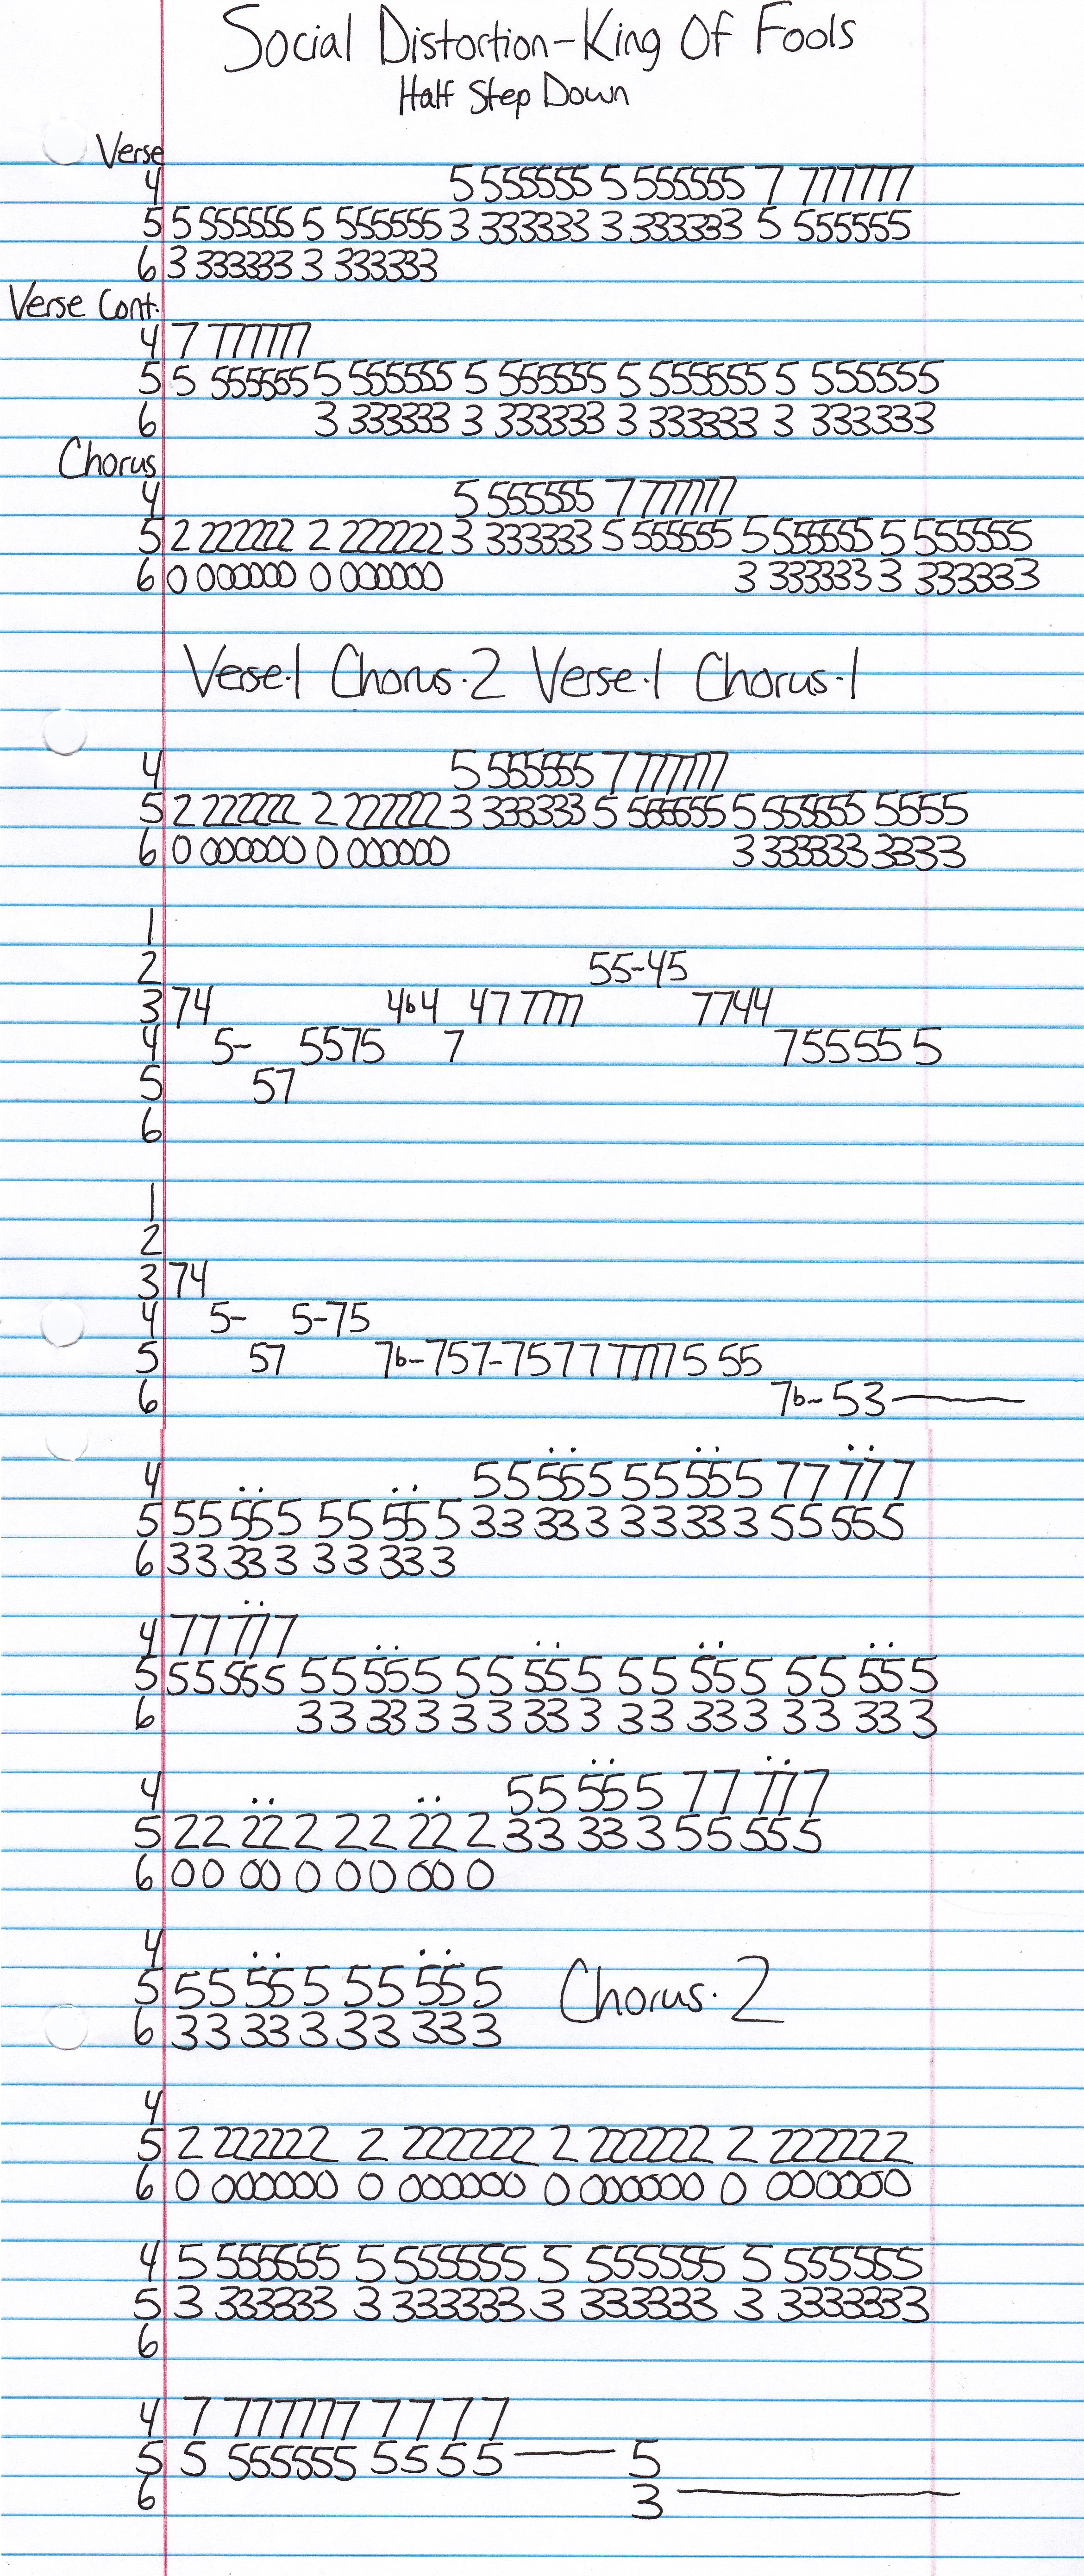 Social Distortion-King Of Fools
Half Step Down
Verse
4 5 555555 5 555555 7 777777
5 5 555555 5 555555 3 333333 3 333333 5 555555
6 3 333333 3 333333
Verse Cont.
4 7 777777
5 5 555555 5 555555 5 555555 5 555555 5 555555
6 3 333333 3 333333 3 333333 3 333333
Chorus
4 5 555555 7 777777
5 2 222222 2 222222 3 333333 5 555555 5 555555 5 555555
6 0 000000 0 000000 3 333333 3 333333
Verse·1 Chorus·2 Verse·1 Chorus·1
4 5 555555 7 777777
5 2 222222 2 222222 3 333333 5 555555 5 555555 5555
6 0 000000 0 000000 3 333333 3333
1
2 55-45
3 74 4b4 47 7777 7744
4 5- 5575 7 75555 5
5 57
6
1
2
3 74
4 5- 5-75
5 57 7b-757-7577777775 55
6 7b-53
4 55 55 5 55 55 5 77 77 7
5 55 55 5 55 55 5 33 33 3 33 33 3 55 55 5
6 33 33 3 33 33 3
4 77 77 7
5 55 55 5 55 55 5 55 55 5 55 55 5 55 55 5
6 33 33 3 33 33 3 33 33 3 33 33 3
4 55 55 5 77 77 7
5 22 22 2 22 22 2 33 33 3 55 55 5
6 00 00 0 00 00 0
4
5 55 55 5 55 55 5 Chorus·2
6 33 33 3 33 33 3
4
5 2 222222 2 222222 2 222222 2 222222
6 0 000000 0 000000 0 000000 0 000000
4 5 555555 5 555555 5 555555 5 555555
5 3 333333 3 333333 3 333333 3 333333
6
4 7 777777 7777
5 5 555555 5555 5
6 3